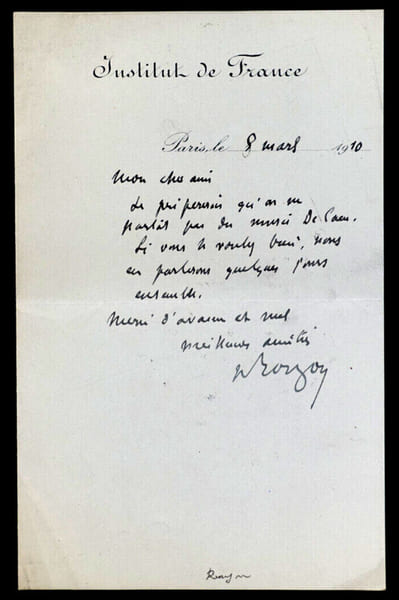 Institut de France
Paris, le 8 mars 1910
Mon cher ami
Je préférerais qu'on ne
parlât pas du musée De Caen.
Si vous le voulez bien, nous
en parlerons quelques jours
ensemble.
Merci d'avance et mes
meilleures amitiés